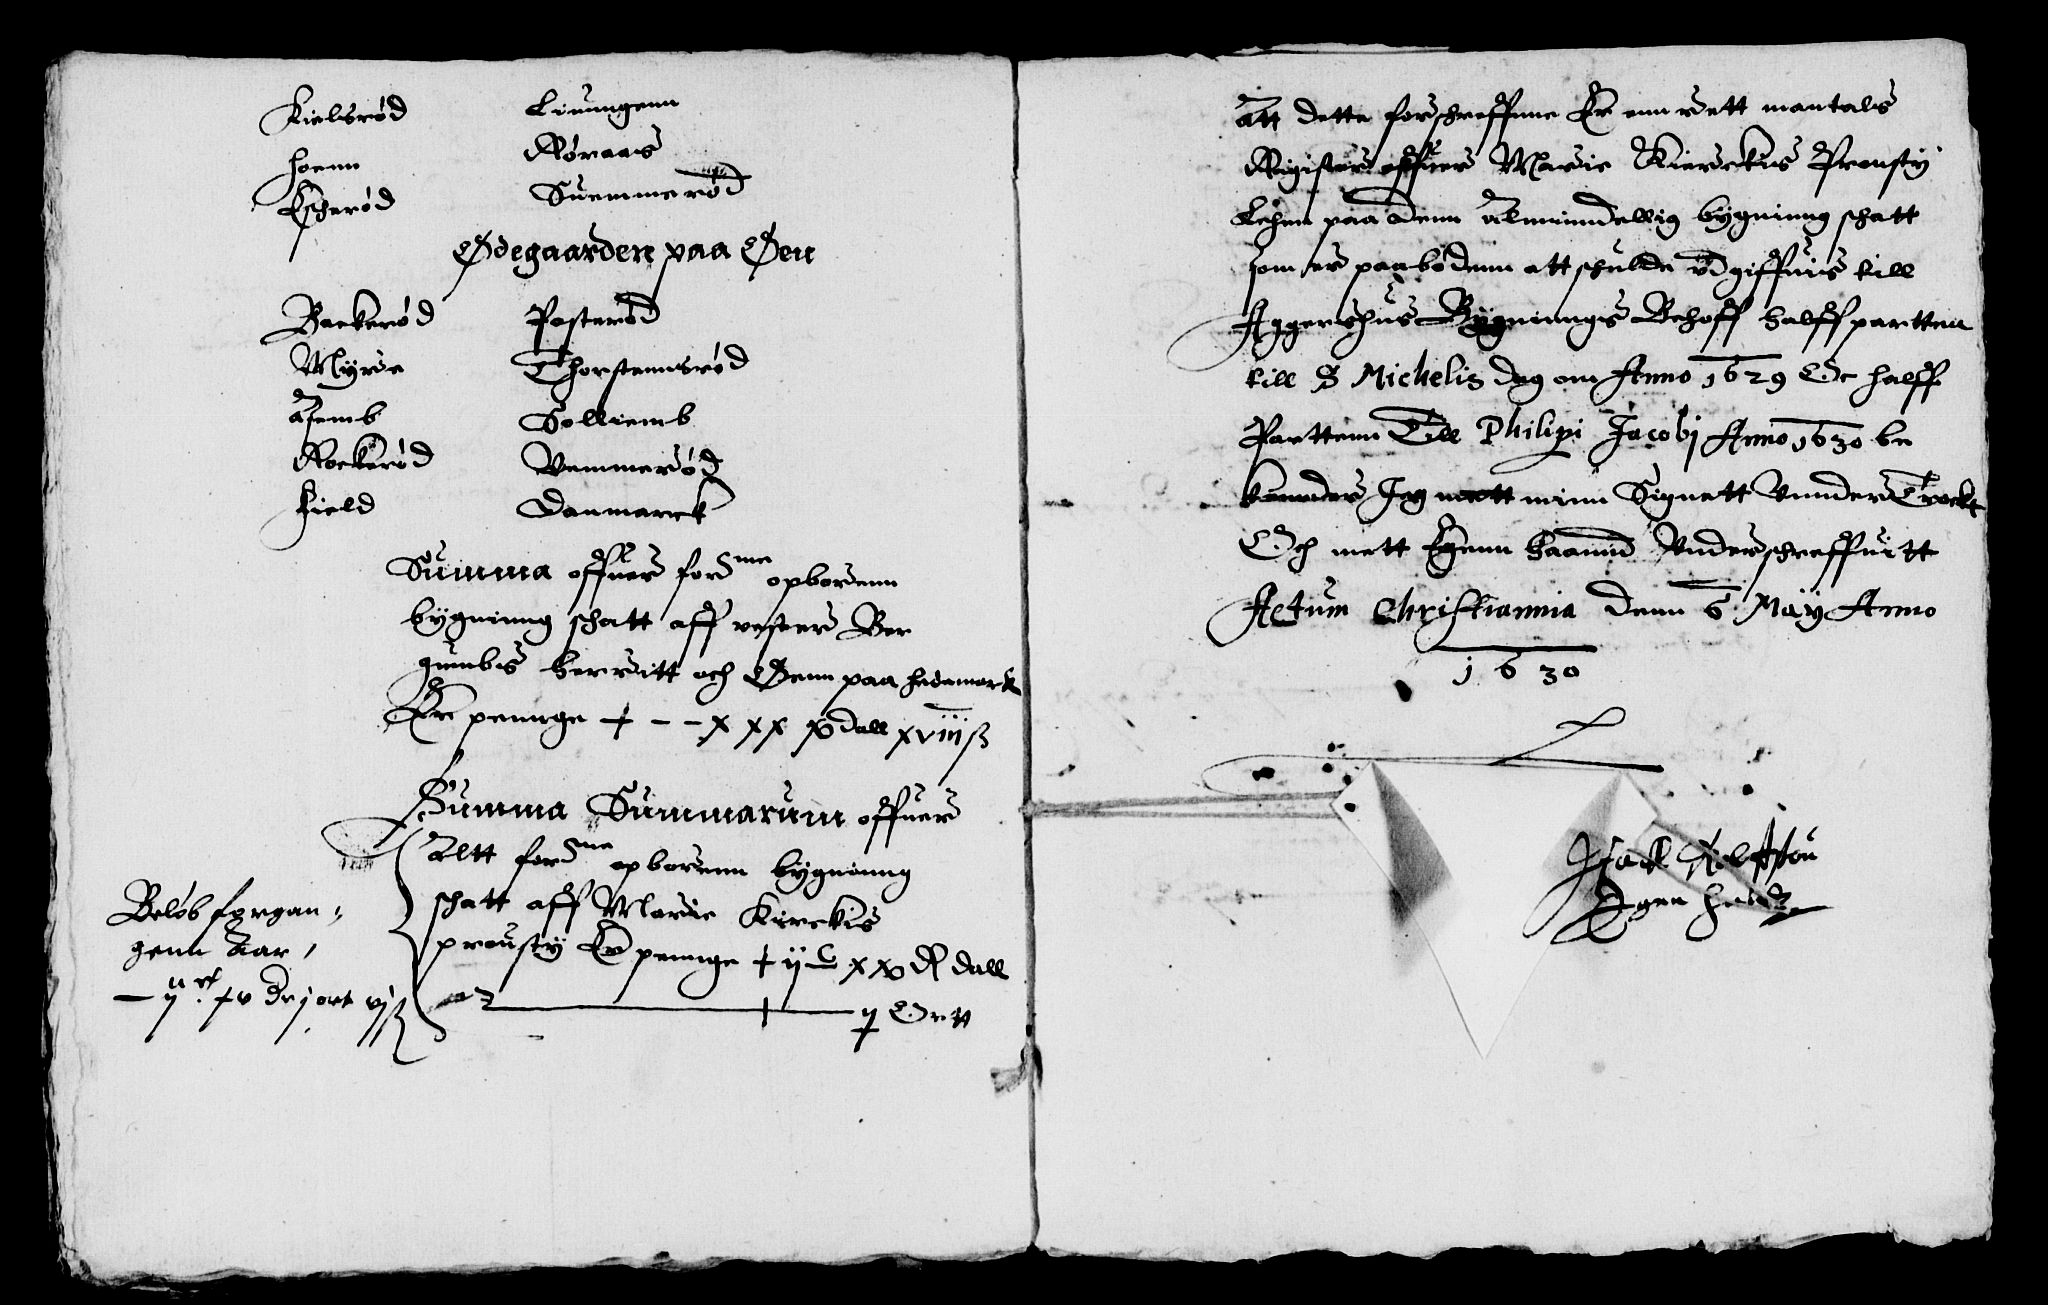 Kielsrød
Linungenn
hoenn
Røraas
Escherød
Suemmerød
Ødegaarden paa Øen
Backerød
Pasterød
Myre
Thorstennsrød
Asemb
Solliemb
Rockerød
Vemmerød
Field
Danmarck
Summa offuer forsme opborenn
bygninng schatt aff vester Ber
gumbs herritt och Øenn paa hedemark
Er pennge xxx dall xviiij ß
Summa Summarum offuer
Altt forsme opborenn bygninng
schatt aff Marie Kirckis
proustij Er pennge
Ortt
Beløb forgan
genn Aar
Att dette forschreffnne Er enn rett mantals
Register offuer Marie Kirckis Proustij
Lehen paa denn Almindellig bygninng schatt
som er paabødenn att schulde vdgiffuis till
Aggershus Bygninngs Behoff halff partten
till S Michelis dag om Anno 1629 Oc halff
Parttenn Till Philipi Jacobj Anno 1630 be
kennder Jeg mett minn Signett Vnnder Trockt
Och mett Egenn haannd Vnderschreffuitt
Actum Christiannia denn 6 Maÿ Anno
1630
Egen handt